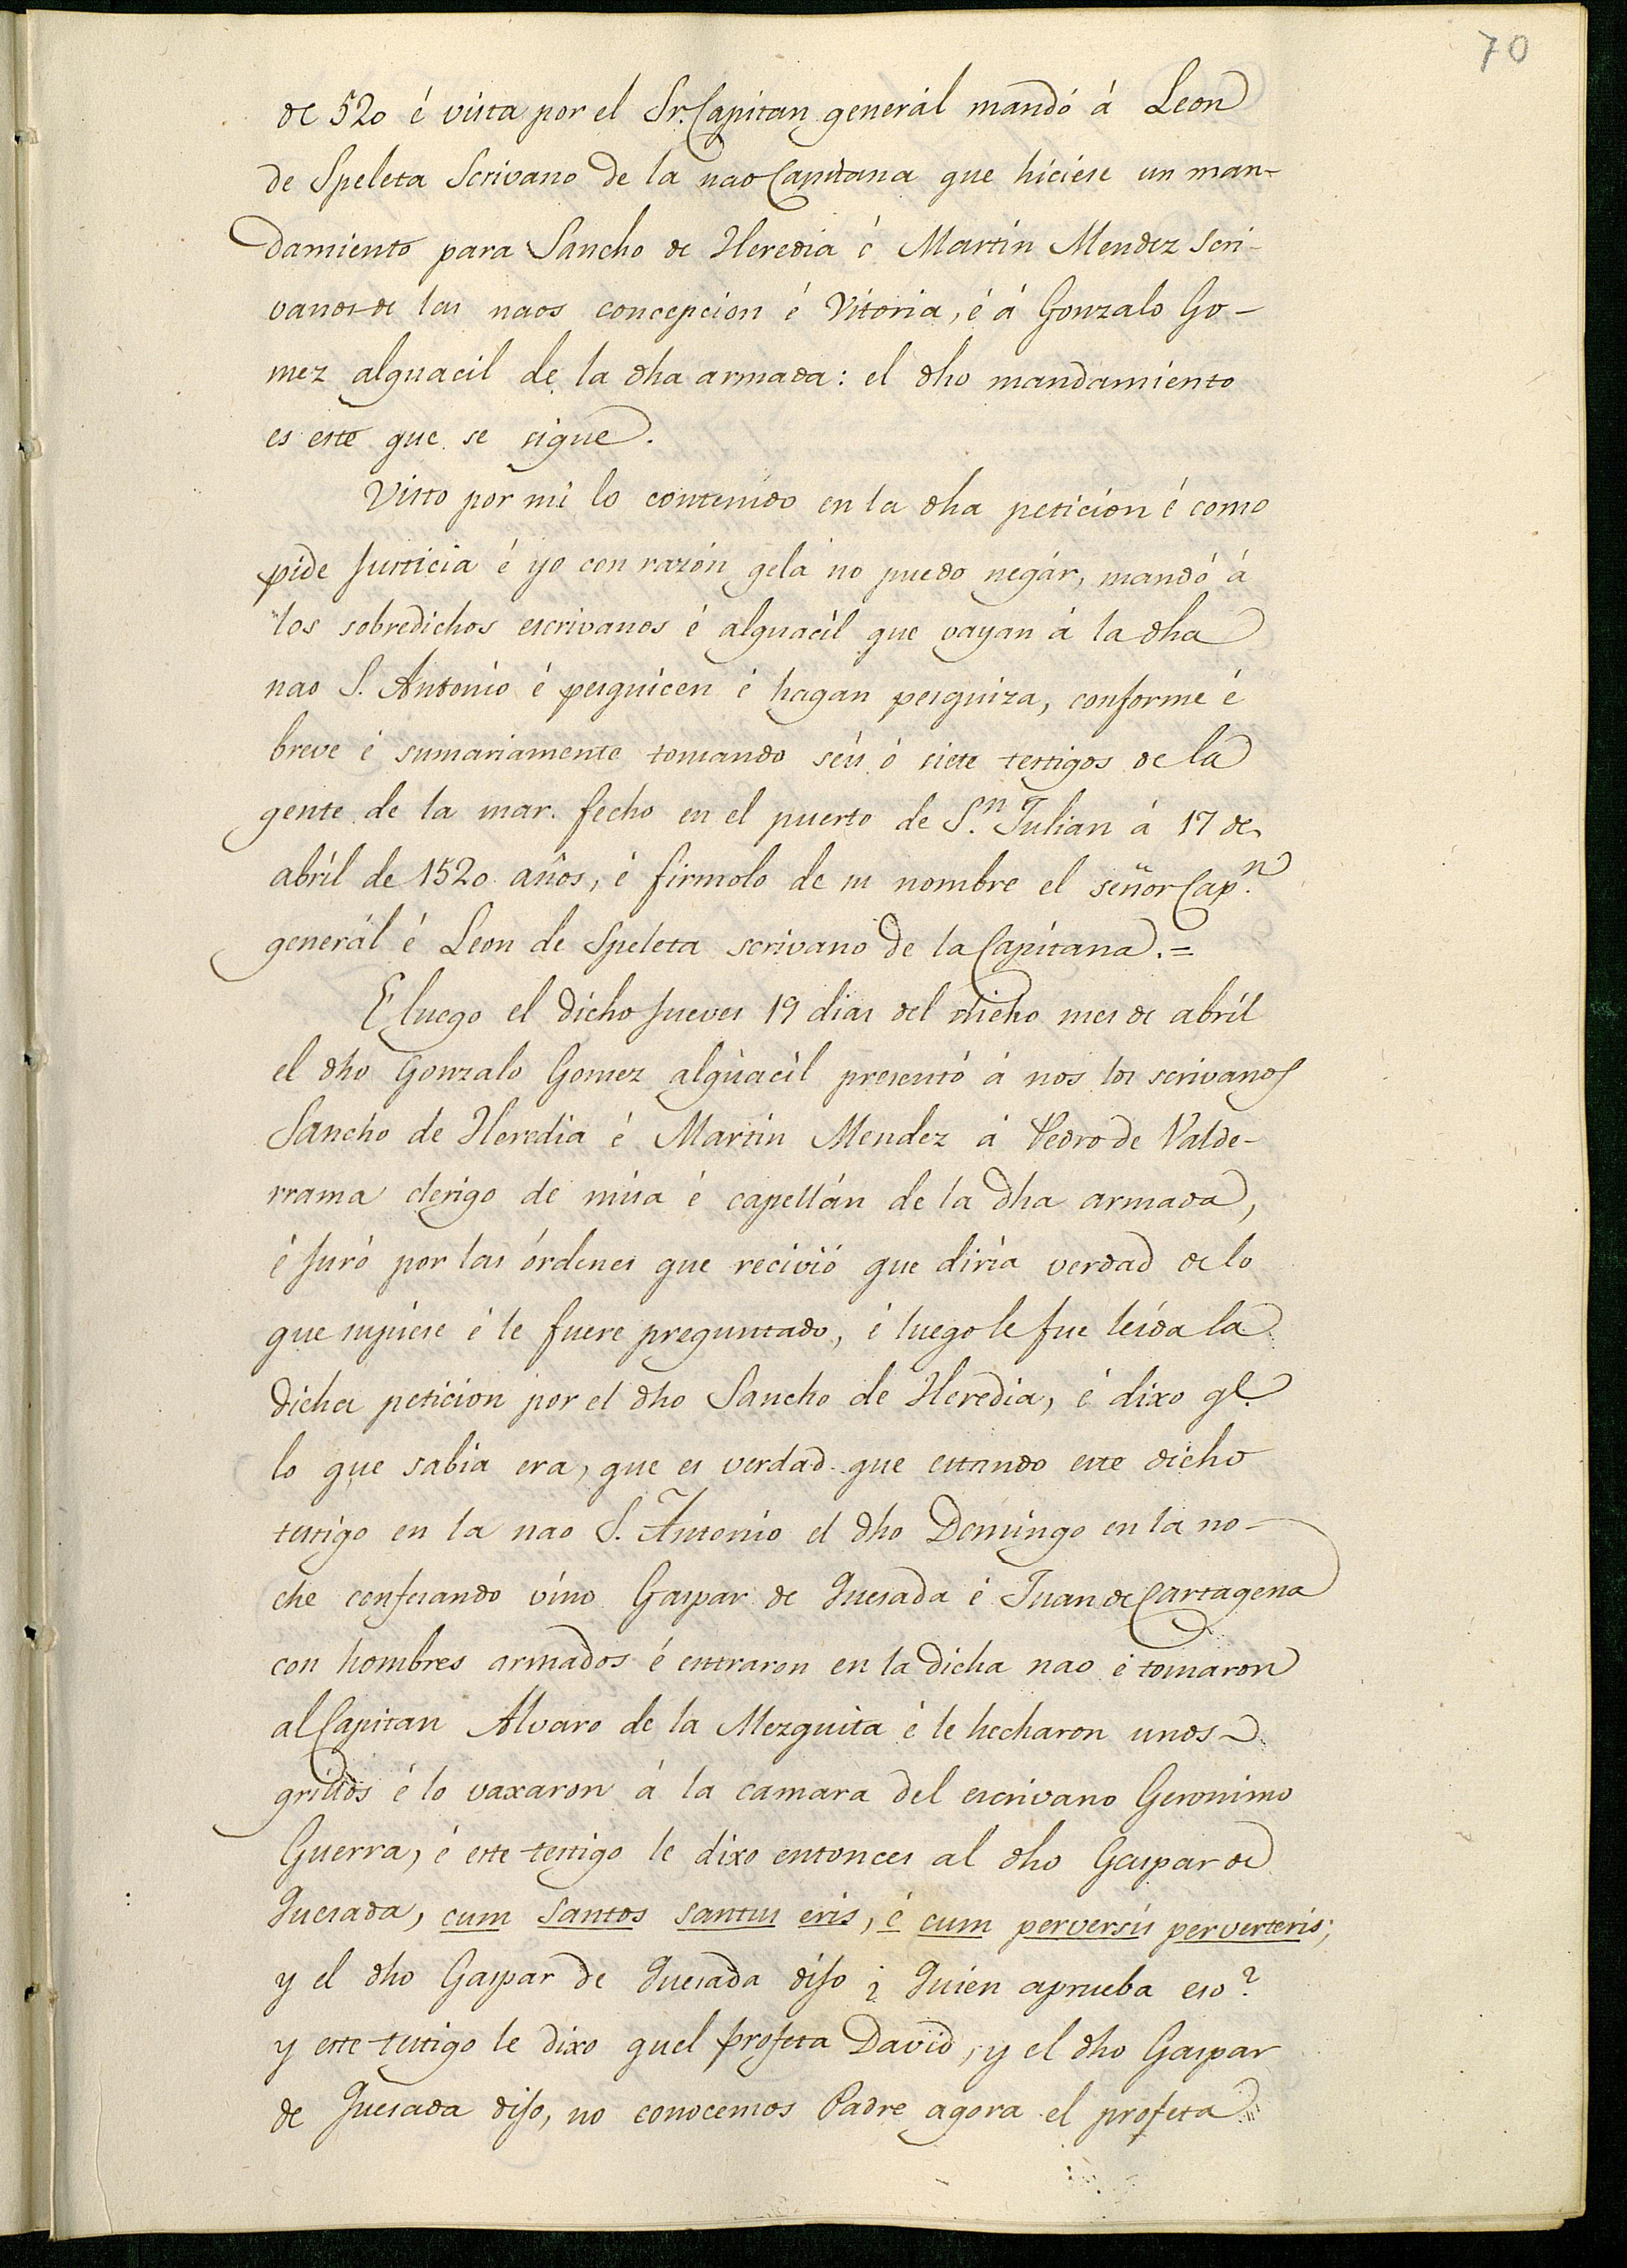 70
de 520 é vista por el Sr. Capitan generál mandó á Leon
de Speleta Scrivano de la nao Capitana que hiciese un man-
damiento para Sancho de Heredia é Martin Mendez scri-
vanos de las naos concepcion é Vitoria, é á Gonzalo Go-
mez alguacil de la dha armada: el dho mandamiento
es este que se sigue.
Visto por mi lo contenido en la dha peticion é como
pide Justicia é yo con razón gela no puedo negár, mandó á
los sobredichos escrivanos é alguacìl que vayan á la dha
nao S. Antonio é pesquicen é hagan pesquiza, conforme é
breve é sumariamente tomando séis ó siete testigos de la
gente de la mar. fecho en el puerto de S.n Julian á 17 de
abríl de 1520 años, é firmolo de su nombre el señor Cap.n
generál é Leon de Speleta scrivano de la Capitana.=
E luego el dicho Jueves 19 dias del dicho mes de abríl
el dho Gonzalo Gomez algüacìl presentó á nos los scrivanos
Sancho de Heredia é Martin Mendez á Pedro de Valde-
rrama clerigo de misa é capellán de la dha armada,
é Juró por las órdenes que recivió que diría verdad de lo
que supiese é le fuere preguntado, é luego le fue leída la
dicha peticion por el dho Sancho de Heredia, é dixo qe.
lo que sabia era, que es verdad que estando este dicho
testigo en la nao S. Antonio el dho Domingo en la no-
che confesando víno Gaspar de Quesada é Juan de Cartagena
con hombres armados é entraron en la dicha nao é tomaron
al Capitan Alvaro de la Mezquita é le hecharon unos
grillos é lo vaxaron á la camara del escrivano Geronimo
Guerra, é este testigo le dixo entonces al dho Gaspar de
Quesada, cum santos santus eris, é cum perversis perverteris;
y el dho Gaspar de Quesada dijo ¿ Quien aprueba eso?
y este testigo le dixo quel profeta David, y el dho Gaspar
de Quesada dijo, no conocemos Padre agora el profeta